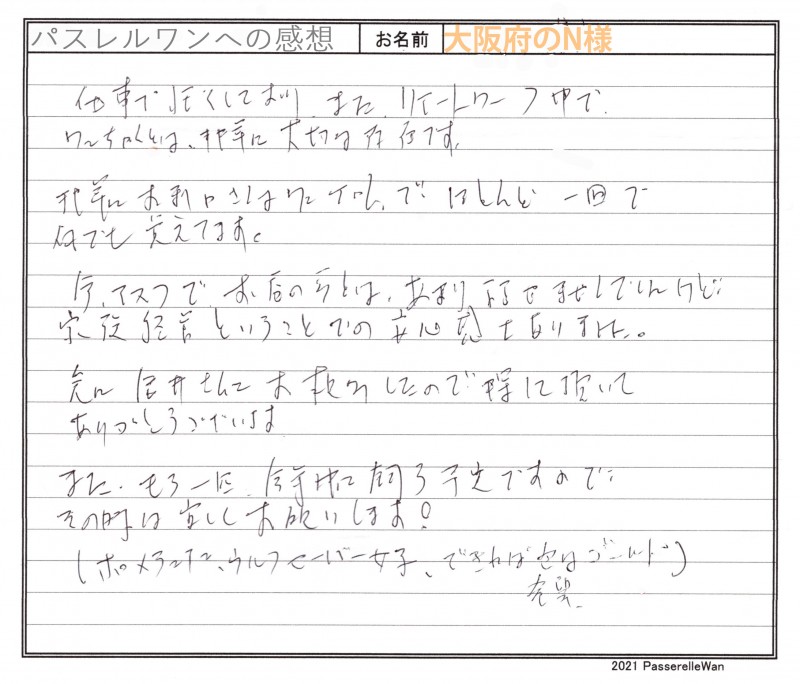 パスレルワンへの感想 お名前 大阪府のN様
仕事で忙しくしており、また、リモートワーク中で、
ワンちゃんとは、非常に大切な存在です。
非常にお利口さんなワンちゃんで、ほとんど一回で
何でも覚えてます。
今、マスクで、お店の方とは、あまり話せませんでしたけど
家族経営ということでの安心感もありました。
先に さんに お したので に頂いて
ありがとうございます
また、もう一匹、今年中に飼う予定ですので
その時は宜しくお願いします!
(ポメラニアン、ウルフセーバー女子、できれば色はゴールド)
希望、
2021 PasserelleWan